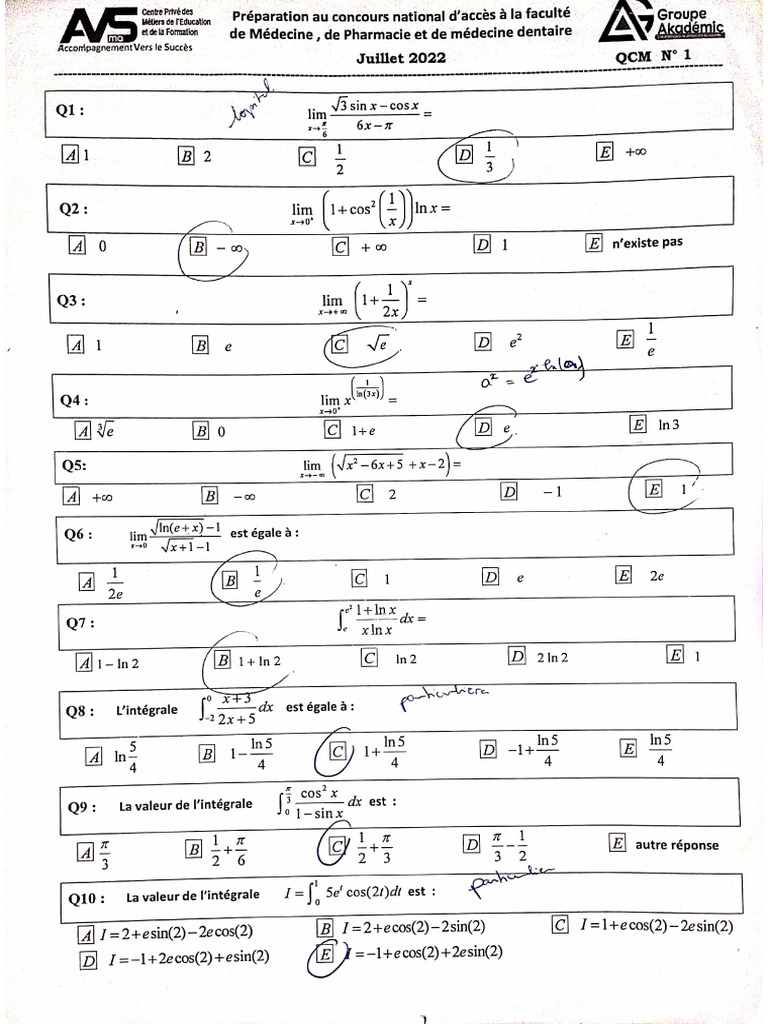 AVS ma
Centre Privé des
Métiers de l'Education
et de la Formation
Accompagnement Vers le Succès
Préparation au concours national d'accès à la faculté
de Médecine , de Pharmacie et de médecine dentaire
Juillet 2022
Groupe
Akadémic
QCM N° 1
Q1 : lim x→π/6 (√3 sin x − cos x)/(6x − π) =
A 1 B 2 C 1/2 D 1/3 E +∞
Q2 : lim x→0⁺ (1+cos²(1/x)) ln x =
A 0 B −∞ C +∞ D 1 E n'existe pas
Q3 : lim x→+∞ (1+1/2x)^x =
A 1 B e C √e D e² E 1/e
aˣ = e^(x ln(a))
Q4 : lim x→0⁺ x^(1/ln(3x)) =
A ∛e B 0 C 1+e D e E ln 3
Q5: lim x→−∞ (√(x²−6x+5) + x−2) =
A +∞ B −∞ C 2 D −1 E 1
Q6 : lim x→0 (√ln(e+x) −1)/(√(x+1) −1) est égale à :
A 1/2e B 1/e C 1 D e E 2e
Q7 : ∫ₑ^(e²) (1+ln x)/(x ln x) dx =
A 1−ln 2 B 1+ln 2 C ln 2 D 2 ln 2 E 1
Q8 : L'intégrale ∫₋₂⁰ (x+3)/(2x+5) dx est égale à :
A ln 5/4 B 1− ln 5/4 C 1+ ln 5/4 D −1+ ln 5/4 E ln 5/4
Q9 : La valeur de l'intégrale ∫₀^(π/3) cos² x/(1−sin x) dx est :
A π/3 B 1/2+π/6 C 1/2+π/3 D π/3−1/2 E autre réponse
Q10 : La valeur de l'intégrale I=∫₀¹ 5eᵗ cos(2t)dt est :
A I=2+e sin(2)−2e cos(2) B I=2+e cos(2)−2sin(2) C I=1+e cos(2)−2e sin(2)
D I=−1+2e cos(2)+e sin(2) E I=−1+e cos(2)+2e sin(2)